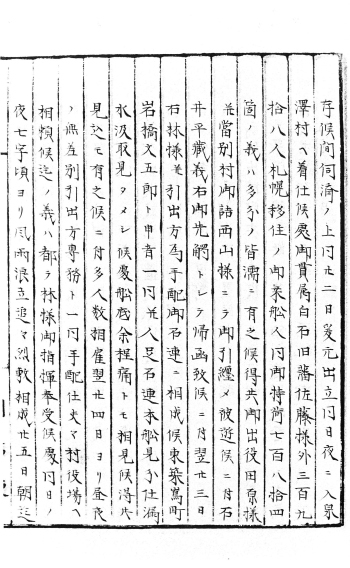 存候間伺済ノ上同廿二日爰元出立同日夜ニ入泉
澤村ヘ着仕候處御貫属白石旧藩佐藤様外三百九
拾八人札幌移住ノ御乗船人同御持荷七百八拾四
箇ノ義ハ多分ノ皆濡ニ有之候得共御出役田原様
並當別村御詰西山様ニテ御引纏メ被遊候ニ付石
井平蔵義右御先觸トシテ帰函致候ニ付翌廿三日
石林様並引出方為手配御召連ニ相成候東築嶌町
岩橋文五郎ト申者一同並人足召連本船見分仕漏
水汲取見タメシ候處船底余程痛トモ相見候得共
見込モ有之候ニ付多人数相雇翌廿四日ヨリ昼夜
ノ無差別引出方専務ト一同手配仕丈ケ村役場ヘ
相頼候迄ノ義ハ都テ林様御指揮奉受候處同日ノ
夜七字頃ヨリ風雨浪立追々烈敷相成廿五日朝迄